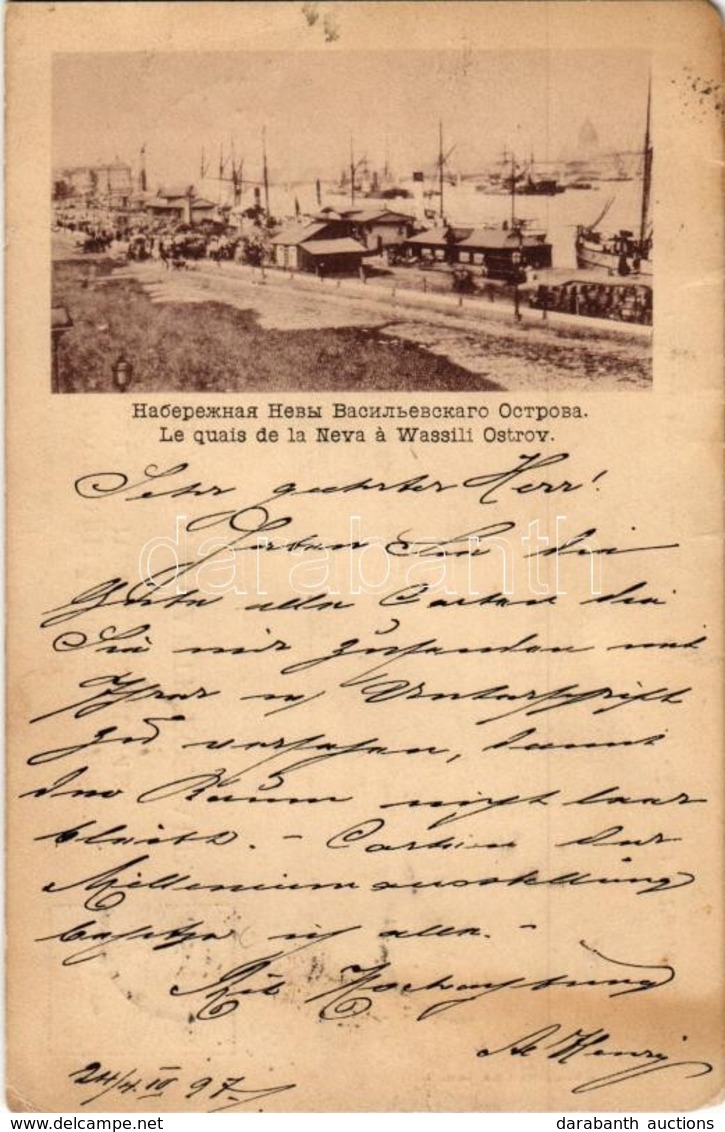 Набережная Невы Васильевскаго Острова.
Le quais de la Neva à Wassili Ostrov.
Sehr geehrter Herr!
Haben Sie die
Güte alle Carten die
Sie mir zusenden mit
Ihrer Unterschrift
zu versehen, damit
der Raum nicht leer
bleibt. – Carten der
Milleniumausstellung
besitze ich alle. –
Mit Hochachtung
Henry
24/4 III 97.
darabanth
darabanth auctions